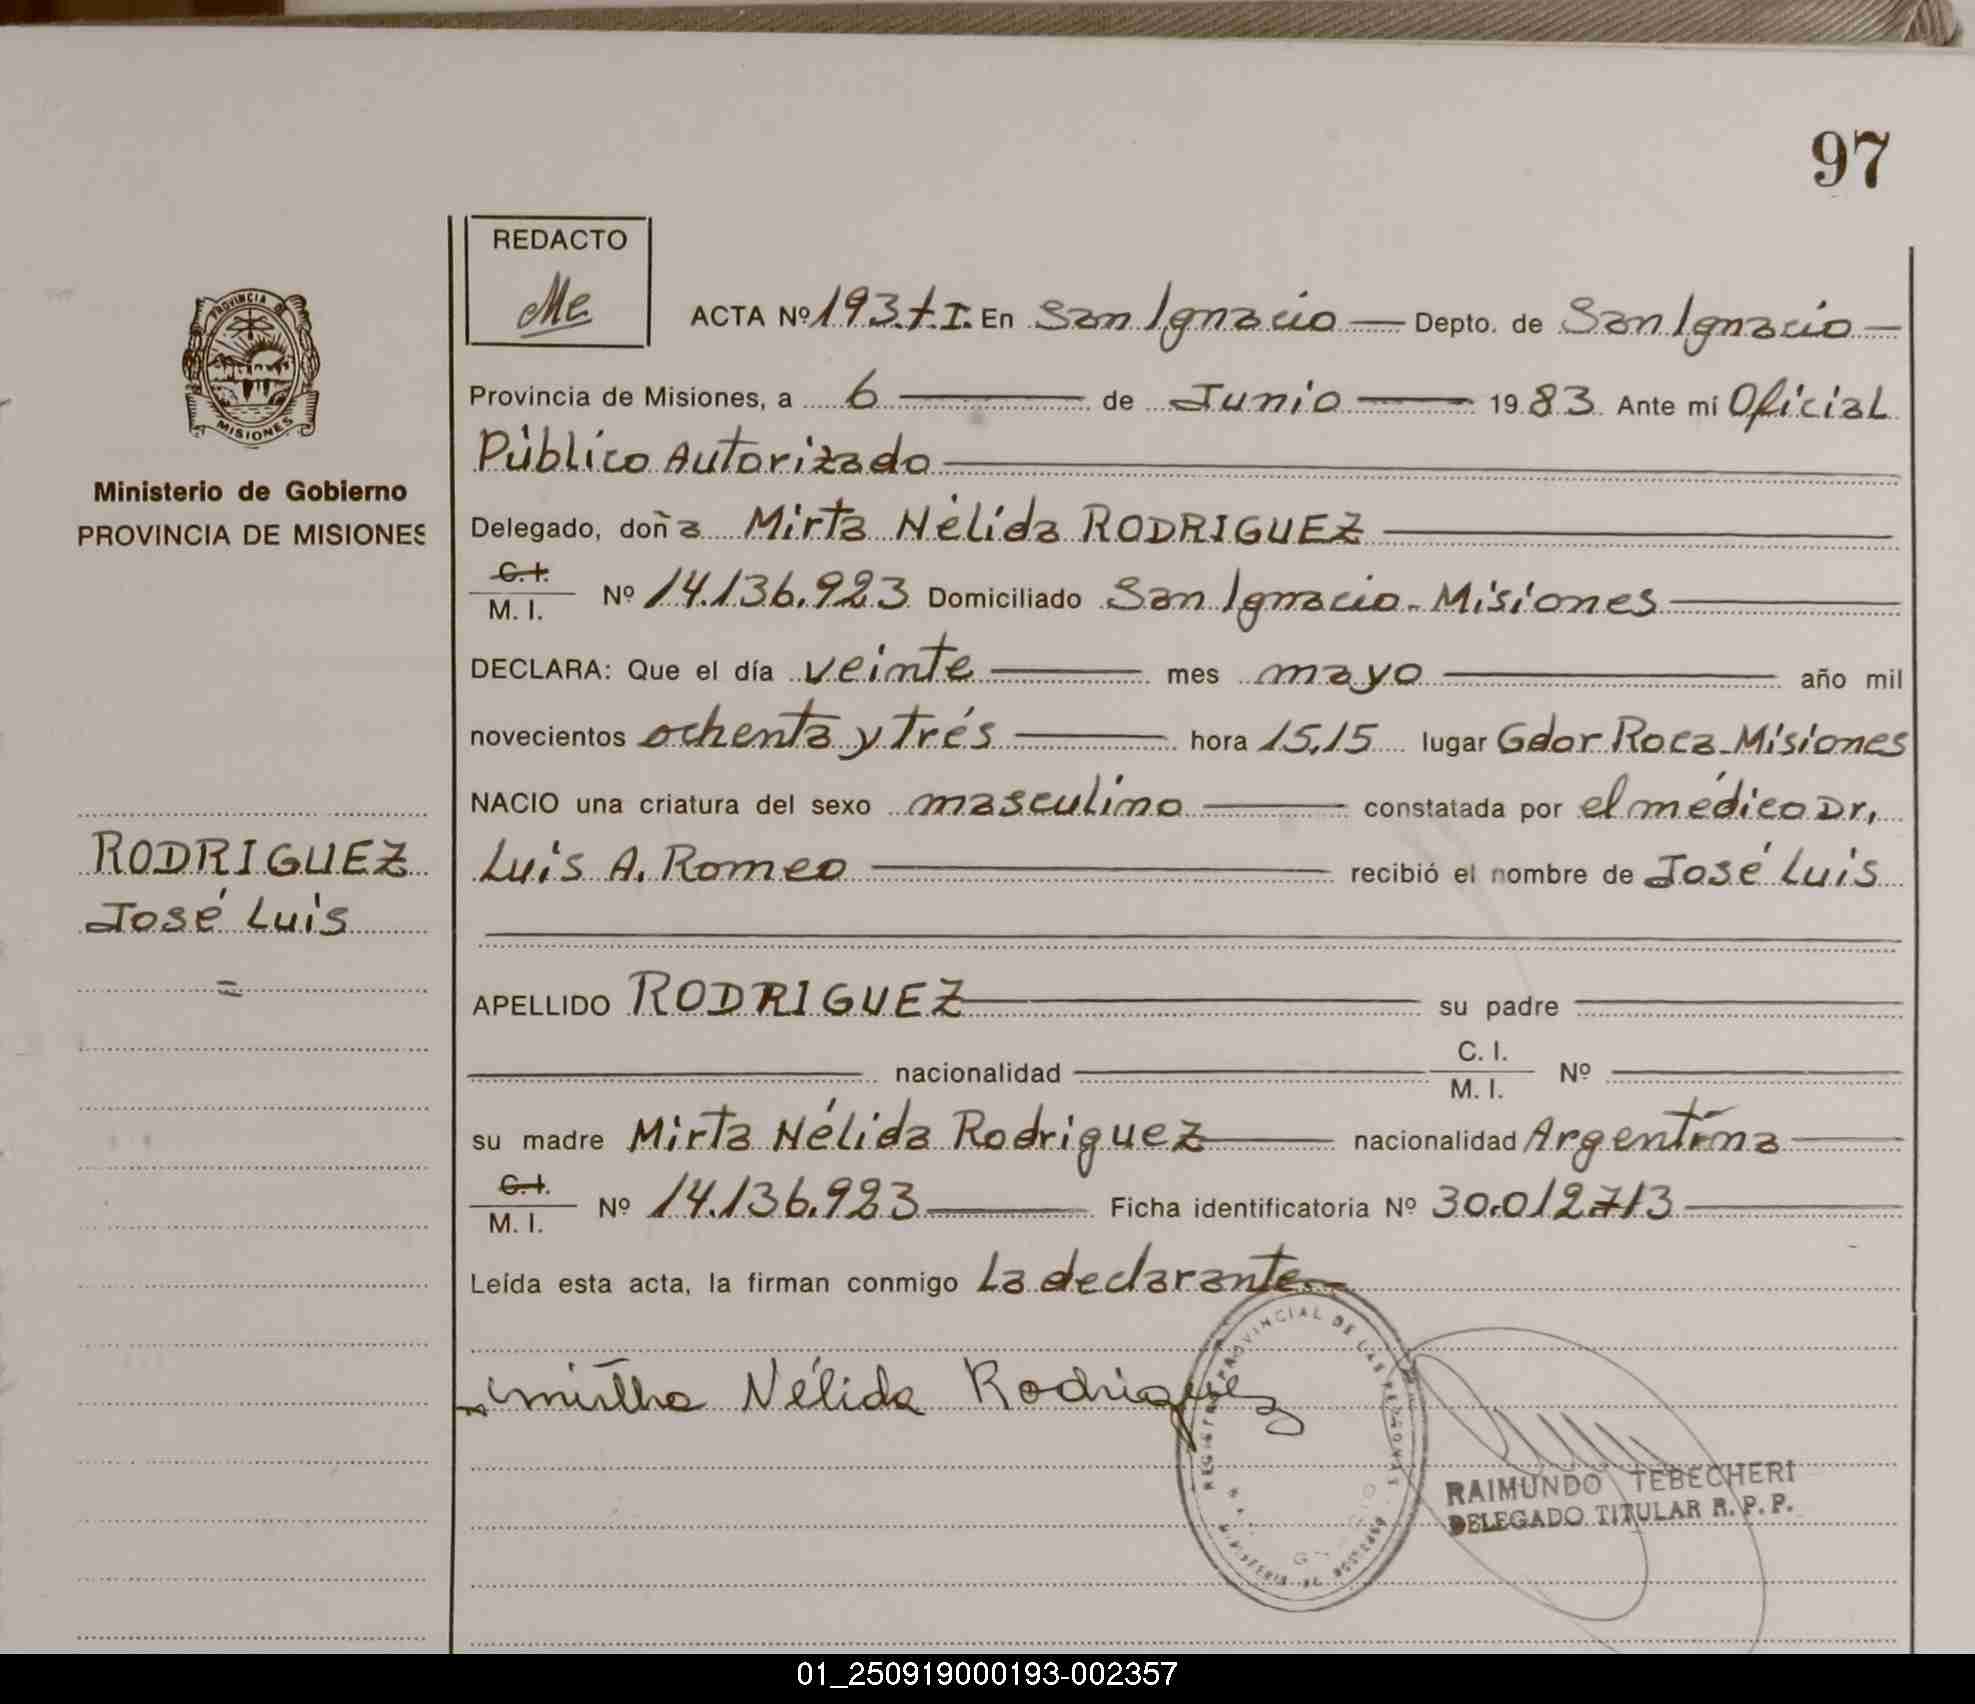 97
REDACTO
Me
PROVINCIA DE
MISIONES
Ministerio de Gobierno
PROVINCIA DE MISIONES
RODRIGUEZ
José Luis
=
ACTA Nº 193.t.I. En San Ignacio — Depto. de San Ignacio —
Provincia de Misiones, a 6 — de Junio — 1983 Ante mí Oficial
Público Autorizado —
Delegado, doña Mirta Nélida RODRIGUEZ —
C. I.
M. I. Nº 14.136.923 Domiciliado San Ignacio - Misiones —
DECLARA: Que el día veinte — mes mayo — año mil
novecientos ochenta y trés — hora 15,15 lugar Gdor Roca - Misiones
NACIO una criatura del sexo masculino — constatada por el médico Dr,
Luis A. Romeo — recibió el nombre de José Luis
APELLIDO RODRIGUEZ — su padre —
— nacionalidad — C. I. M. I. Nº —
su madre Mirta Nélida Rodriguez — nacionalidad Argentina —
C. I.
M. I. Nº 14.136.923 — Ficha identificatoria Nº 30.012.713 —
Leída esta acta, la firman conmigo La declarante —
Mirtha Nélida Rodriguez
REGISTRO PROVINCIAL DE LAS PERSONAS
RAIMUNDO TEBECHERI
DELEGADO TITULAR R. P. P.
01_250919000193-002357